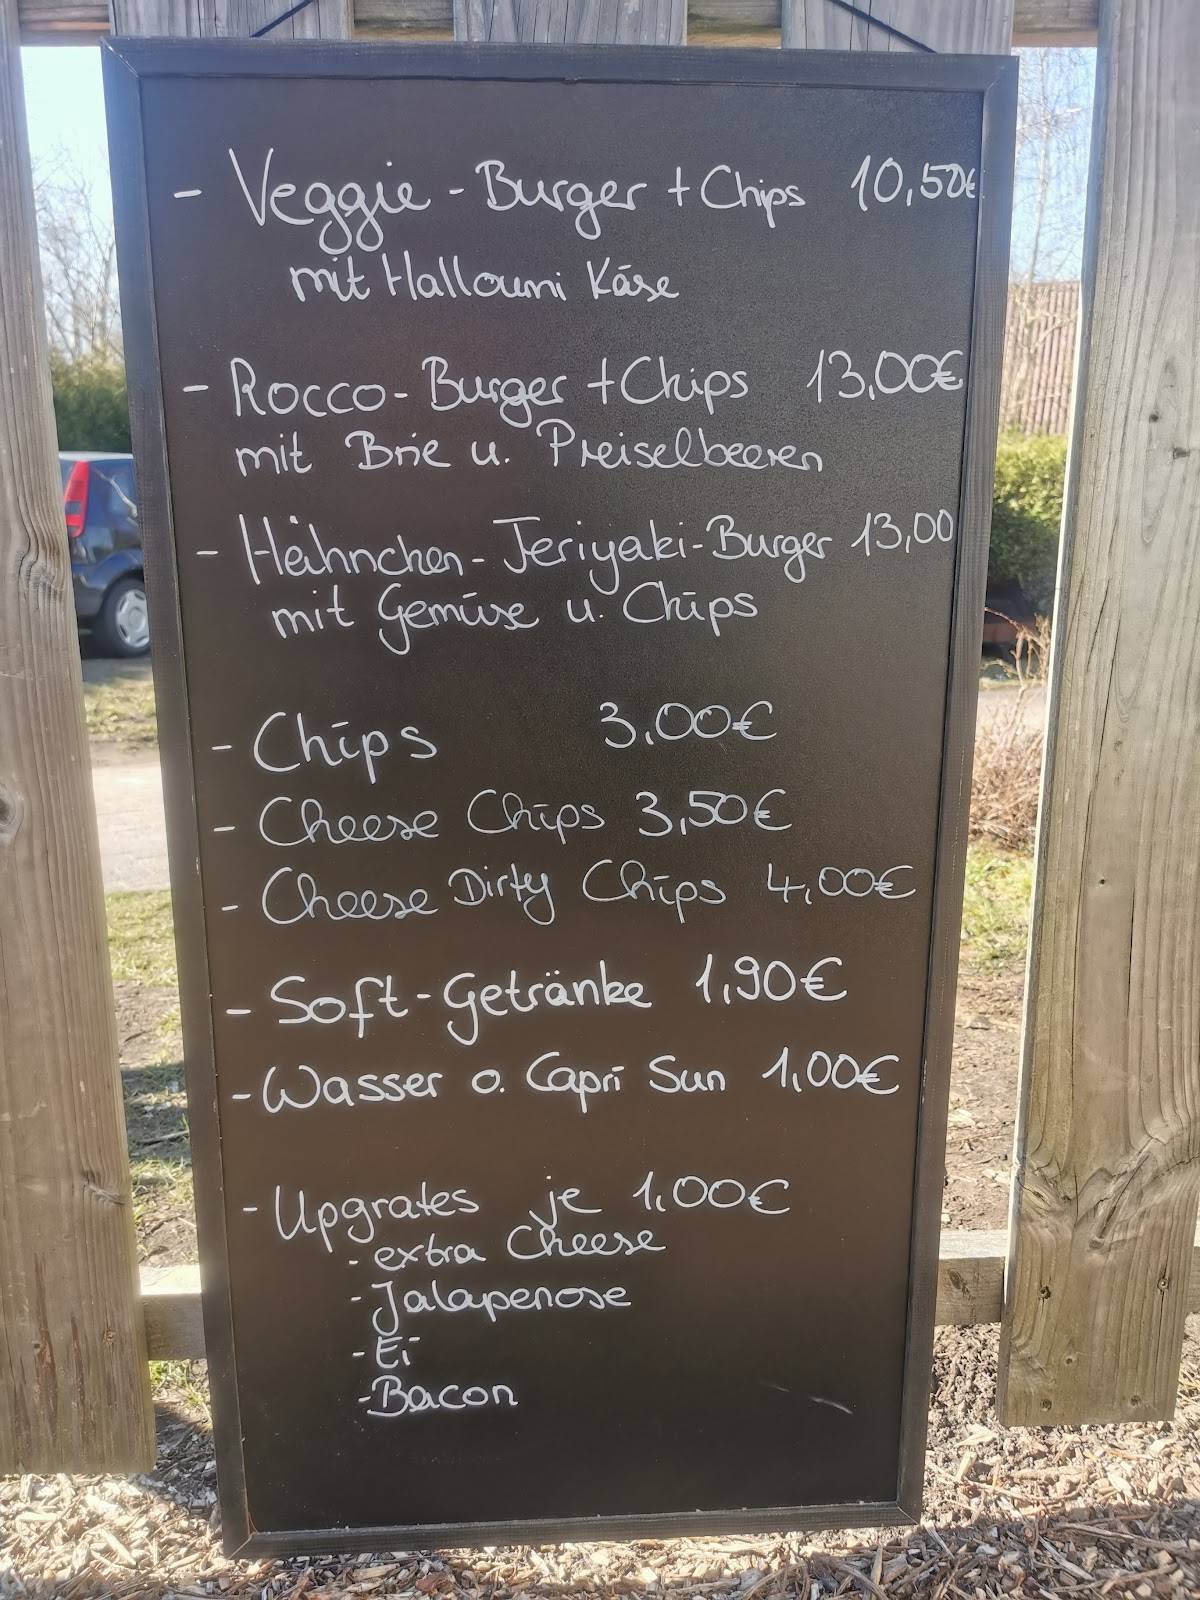 - Veggie-Burger + Chips 10,50€
mit Halloumi Käse
- Rocco-Burger + Chips 13,00€
mit Brie u. Preiselbeeren
- Hähnchen-Teriyaki-Burger 13,00
mit Gemüse u. Chips
- Chips 3,00€
- Cheese Chips 3,50€
- Cheese Dirty Chips 4,00€
- Soft-Getränke 1,90€
- Wasser o. Capri Sun 1,00€
- Upgrates je 1,00€
- extra Cheese
- Jalapenose
- Ei
- Bacon